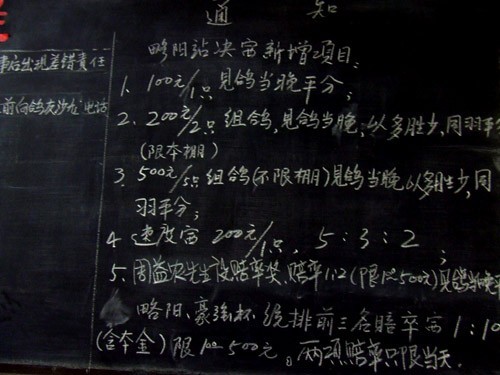 通 知
略阳站决赛新增项目:
1. 100元/1只见鸽当晚平分;
2. 200元/2只组鸽,见鸽当晚,以多胜少,同羽平
(限本棚)
3. 500元/5只组鸽(不限棚)见鸽当晚以多胜少,同
羽平分;
4. 速度赛200元/1只, 5:3:2;
5. 周益农先生设赔率奖.赔率1:2(限1只500元)见鸽当晚
略阳、豪强杯、统排前三名赔率赛1:10
(含本金)限1只500元。两项赔率只限当天.
事后出现差错责任
前 白鸽 灰沙 电话